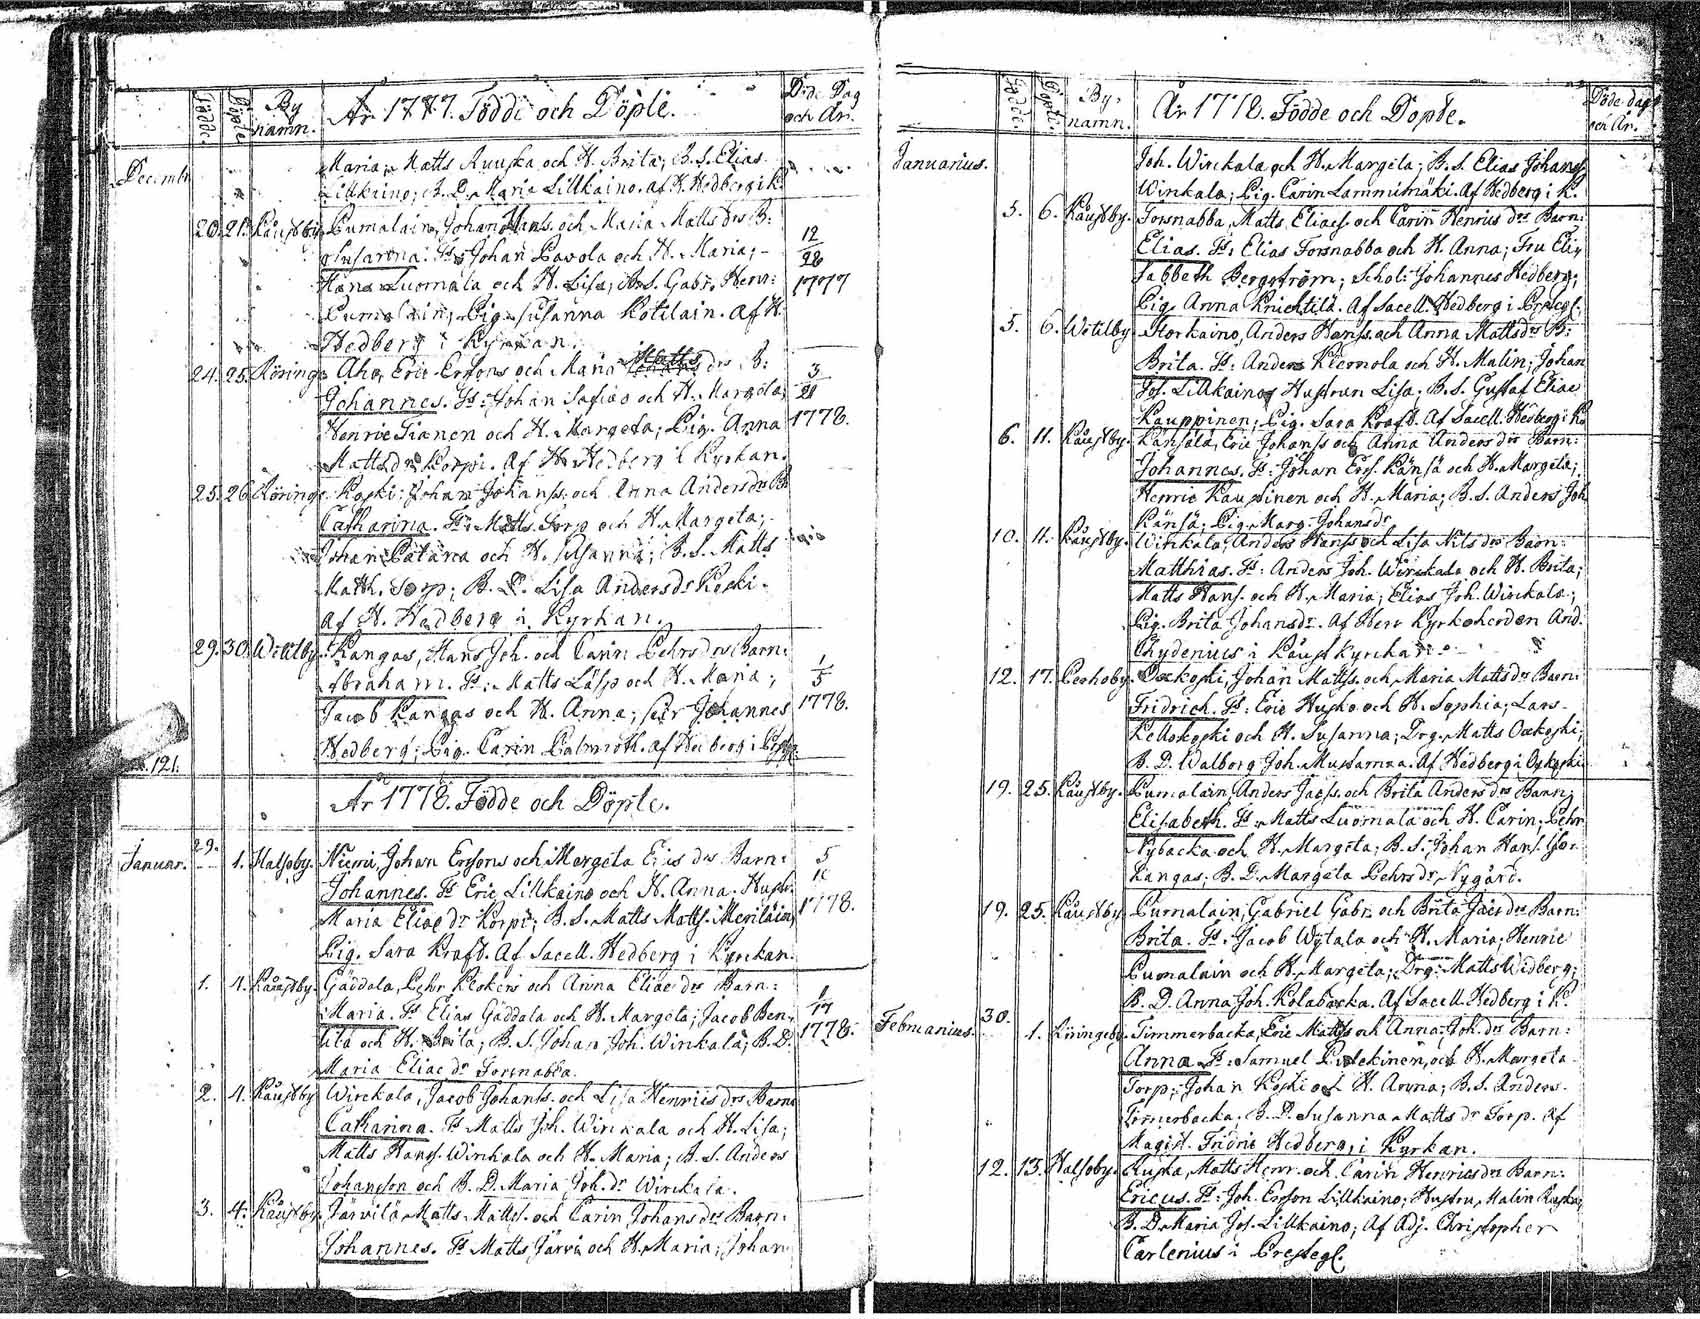 Födde. Döpte. By namn. År 1777. Födde och Döpte. Döde Dag och År.
Decembr. Maria, Matts Ruuska och H. Brita; B. S. Elias
Lillkaino; B. D. Maria Lillkaino. af H. Hedberg i K.
20. 21. Kåustby. Pumalain, Johan Hans. och Maria Matts drs B:
Susanna. Fs: Johan Pavola och H. Maria; 12/28
Hans Luomala och H. Lisa; B. S. Gabr. Henr: 1777
Pumalain; Pig. Susanna Kotilain. Af H.
Hedberg i Kyrkan.
24. 25. Röring. Aho, Eric Ersons och Maria Matts drs B: 3/21
Johannes. Fs: Johan Safiao och H. Margeta;
Henric Tianen och H. Margeta; Pig. Anna 1778.
Matts dr Korpi. Af H. Hedberg i Kyrkan.
25. 26. Röring. Koski: Johan Johanss. och Anna Anders drs B:
Catharina. Fs: Matts Torp och H. Margeta;
Johan Patana och H. Susanna; B. S. Matts
Math. Torp; B. D. Lisa Anders Dr Koski.
af H. Hedberg i Kyrkan.
29. 30. Wetilby. Kangas, Hans Joh. och Carin Pehrs drs Barn:
Abraham. Fs: Matts Läspp och H. Maria; 1/5
Jacob Kangas och H. Anna; Herr Johannes 1778.
Hedberg; Pig. Carin Palmroth. af Hedberg i Prestg.
121.
År 1778. Födde och Döpte.
Januar. 29. 1. Halsoby. Niemi, Johan Ersons och Margeta Erics drs Barn: 5
Johannes. Fs Eric Lillkaino och H. Anna. Hustr.
Maria Eliae dr Korpi; B. S. Matts Matts. Meriläin; 1778.
Pig. Sara Kraft. Af Sacell. Hedberg i Kyrckan.
1. 4. Kåustby. Gäddala, Pehr Peckers och Anna Eliae drs Barn:
Maria. Fs Elias Gäddala och H. Margeta; Jacob Ben-
tila och H. Brita; B. S. Johan Joh. Wirckala; B. D. 1778.
Maria Eliae dr Forsnabba.
2. 4. Kåustby Wirckala, Jacob Johans. och Lisa Henrics drs Barn
Catharina. Fs Matts Joh. Wirckala och H. Lisa;
Matts Hanss. Wirckala och H. Maria; B. S. Anders
Johanson och B. D. Maria Joh. dr Wirckala.
3. 4. Kåustby. Järvilä Matts Matts. och Carin Johans drs Barn:
Johannes. Fs Matts Järvi och H. Maria; Johan
Födde. Döpte. By namn. År 1778. Födde och Döpte. Döde dag och År.
Januarius. Joh. Wirckala och H. Margeta; B. S. Elias Johanss
Wirckala; Pig. Carin Lammimäki. Af Hedberg i K.
5. 6. Kåustby. Forsnabba, Matts Eliaes och Carin Henrics drs Barn:
Elias. Fs: Elias Forsnabba och H. Anna; Fru Eli-
sabbeth Bergström; Schol: Johannes Hedberg;
Pig. Anna Knichtilä. Af Sacell. Hedberg i Prestg:
5. 6. Wetilby. Storkaino, Anders Hanss. och Anna Matts dr B:
Brita. Fs: Anders Kiemola och H. Malin; Johan
Jos. Lillkaino, Hustrun Lisa. B. S. Gustaf Eliae
Kauppinen; Pig. Sara Kraft. Af Sacell. Hedberg i K.
6. 11. Kåustby. Känsälä, Eric Johanss och Anna Anders drs Barn:
Johannes. Fs: Johan Ers. Känsä och H. Margeta;
Henric Kauppinen och H. Maria; B. S. Anders Joh
Känsä; Pig. Marg. Johans dr
10. 11. Kåustby. Wirckala, Anders Hanss och Lisa Nils drs Barn:
Matthias. Fs: Anders Joh. Wirckala och H. Brita;
Matts Hans. och H. Maria; Elias Joh. Wirckala;
Pig. Brita Johans dr. Af Herr Kyrkoherden And.
Chydenius i Kåustkyrckan.
12. 17. Perhoby. Oxkoski, Johan Mattss. och Maria Matts drs Barn:
Fridrich. Fs: Eric Husko och H. Sophia; Lars
Kellokoski och H. Susanna; Drg. Matts Oxkoski;
B. D. Walborg Joh. Mustamaa. Af Hedberg i Oxkoski.
19. 25. Kåustby. Pumalain, Anders Jacss. och Brita Anders drs Barn:
Elisabeth. Fs: Matts Luomala och H. Carin; Pehr
Nybacka och H. Margeta; B. S. Johan Hans. Tor-
kangas; B. D. Margeta Pehrs dr Nygård.
19. 25. Kåustby. Pumalain, Gabriel Gabr. och Brita Jacs drs Barn:
Brita. Fs: Jacob Wytala och H. Maria; Henric
Pumalain och H. Margeta; Drg: Matts Widberg;
B. D. Anna Joh. Kolabacka. Af Sacell. Hedberg i K.
Februarius. 30. 1. Röringeby. Timmerbacka, Eric Matts och Anna Joh. drs Barn:
Anna Fs: Samuel Pulckinen, och H. Margeta
Torp; Johan Koski och H. Anna; B. S. Anders
Timmerbacka. B. D. Susanna Matts dr Torp. Af
Magist. Fridric Hedberg, i Kyrkan.
12. 13. Halsoby. Ruska, Matts Henr. och Carin Henrics drs Barn:
Ericus. Fs: Joh. Erson Lillkaino, Hustru Malin Ruska;
B. D. Maria Jos. Lillkaino; Af Adj. Christopher
Carlenius i Prestegl.